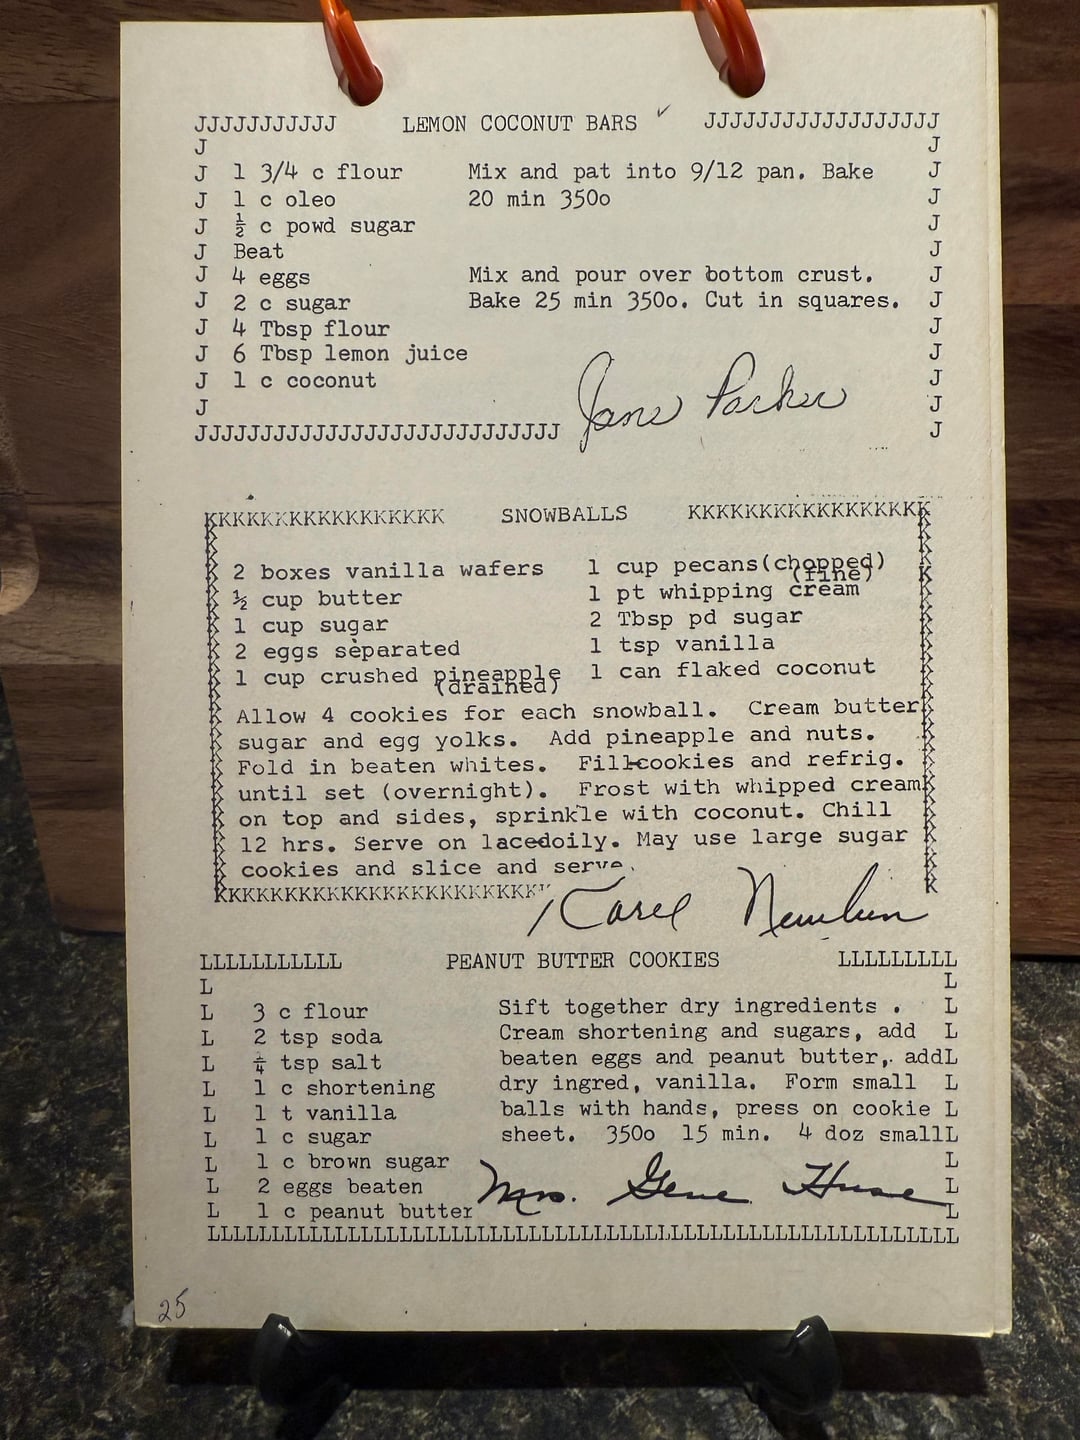 JJJJJJJJJJJ LEMON COCONUT BARS ✓ JJJJJJJJJJJJJJJJJJ
J J
J 1 3/4 c flour Mix and pat into 9/12 pan. Bake J
J 1 c oleo 20 min 350o J
J ½ c powd sugar J
J Beat J
J 4 eggs Mix and pour over bottom crust. J
J 2 c sugar Bake 25 min 350o. Cut in squares. J
J 4 Tbsp flour J
J 6 Tbsp lemon juice J
J 1 c coconut J
J Jane Parker J
JJJJJJJJJJJJJJJJJJJJJJJJJJJJ J
KKKKKKKKKKKKKKKKK SNOWBALLS KKKKKKKKKKKKKKKKK
K 2 boxes vanilla wafers 1 cup pecans(chopped) K
(fine)
K ½ cup butter 1 pt whipping cream K
K 1 cup sugar 2 Tbsp pd sugar K
K 2 eggs separated 1 tsp vanilla K
K 1 cup crushed pineapple 1 can flaked coconut K
(drained)
K Allow 4 cookies for each snowball. Cream butter K
K sugar and egg yolks. Add pineapple and nuts. K
K Fold in beaten whites. Fill cookies and refrig. K
K until set (overnight). Frost with whipped cream K
K on top and sides, sprinkle with coconut. Chill K
K 12 hrs. Serve on lacedoily. May use large sugar K
K cookies and slice and serve. K
KKKKKKKKKKKKKKKKKKKKKKK
LLLLLLLLLLL PEANUT BUTTER COOKIES LLLLLLLLL
L L
L 3 c flour Sift together dry ingredients . L
L 2 tsp soda Cream shortening and sugars, add L
L ¼ tsp salt beaten eggs and peanut butter,. addL
L 1 c shortening dry ingred, vanilla. Form small L
L 1 t vanilla balls with hands, press on cookie L
L 1 c sugar sheet. 350o 15 min. 4 doz smallL
L 1 c brown sugar L
L 2 eggs beaten Mrs. Gene Huse L
L 1 c peanut butter L
LLLLLLLLLLLLLLLLLLLLLLLLLLLLLLLLLLLLLLLLLLLLLLLLLLLLLLLLLL
25